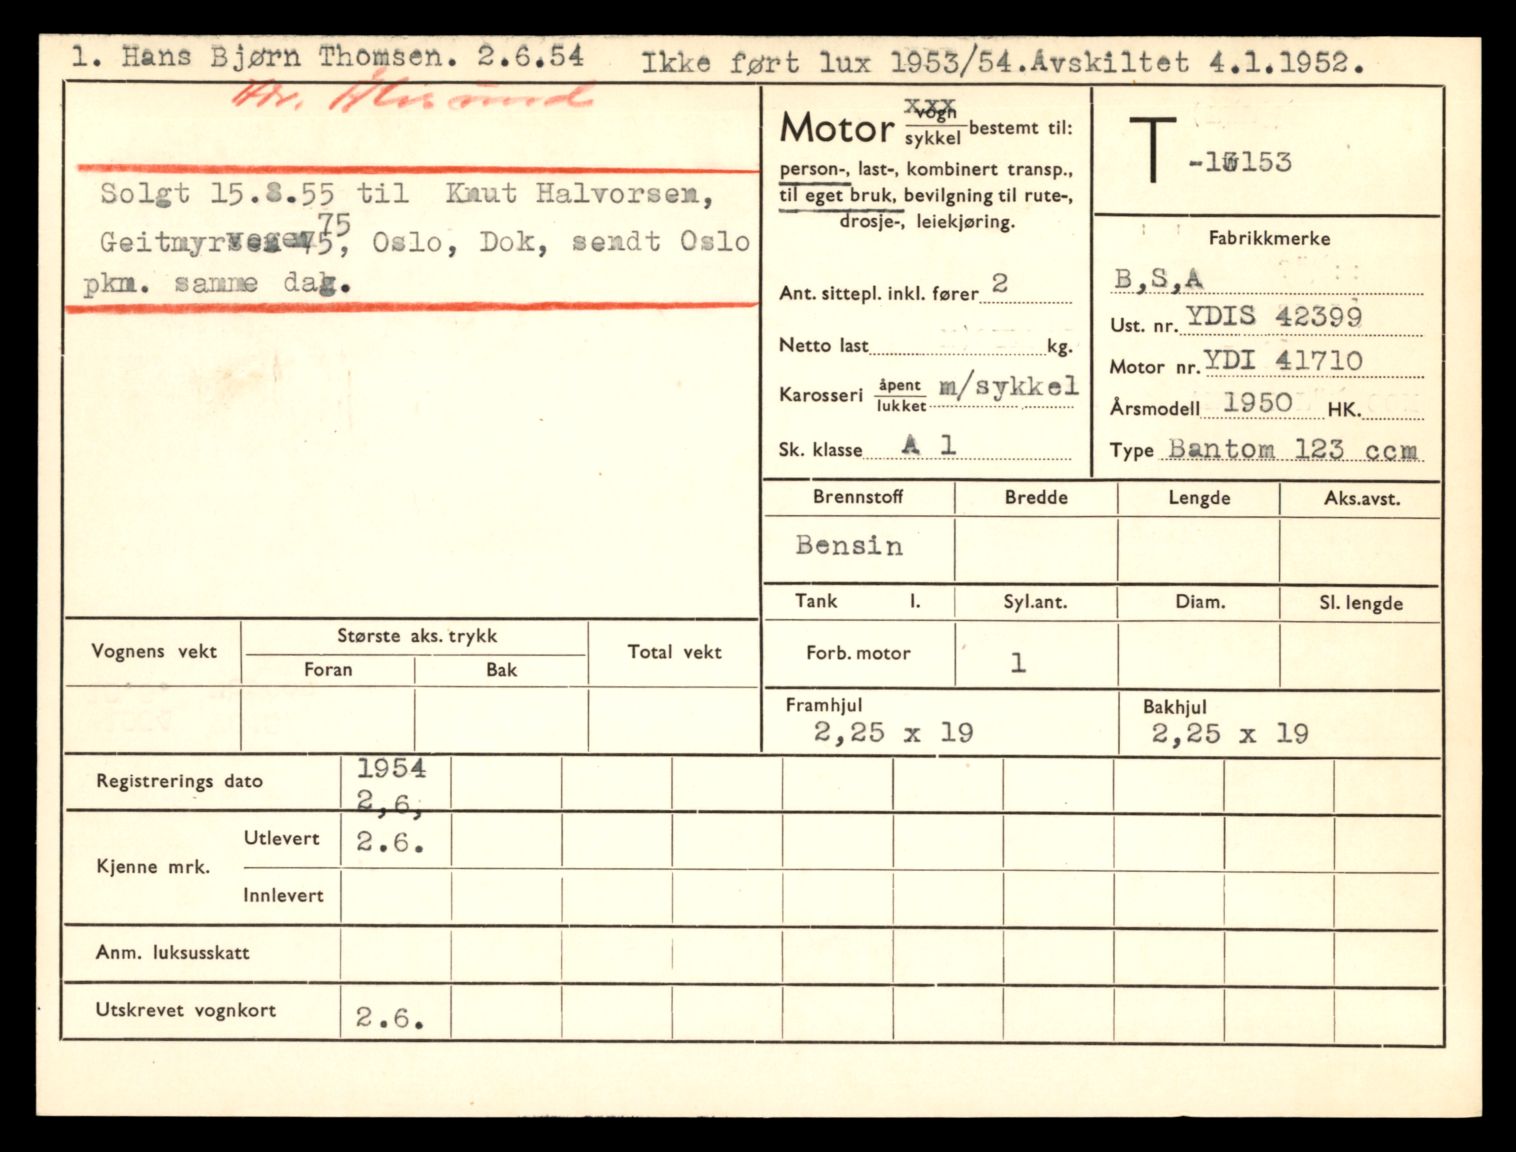 1. Hans Bjørn Thomsen. 2.6.54 Ikke ført lux 1953/54.Avskiltet 4.1.1952.
Solgt 15.8.55 til Knut Halvorsen,
75
Geitmyrvegen 75, Oslo, Dok, sendt Oslo
pkm. samme dag.
Motor vogn/sykkel bestemt til:
xxx
person-, last-, kombinert transp.,
til eget bruk, bevilgning til rute-,
drosje-, leiekjøring.
Ant. sittepl. inkl. fører 2
Netto last kg.
Karosseri åpent/lukket m/sykkel
Sk. klasse A 1
T
Fabrikkmerke
B,S,A
Ust. nr. YDIS 42399
Motor nr. YDI 41710
Årsmodell 1950 HK.
Type Bantom 123 ccm
Brennstoff Bredde Lengde Aks.avst.
Bensin
Tank l. Syl.ant. Diam. Sl. lengde
Forb. motor 1
Framhjul Bakhjul
2,25 x 19 2,25 x 19
Vognens vekt Største aks. trykk Total vekt
Foran Bak
Registrerings dato 1954
2,6,
Kjenne mrk. Utlevert 2.6.
Innlevert
Anm. luksusskatt
Utskrevet vognkort 2.6.